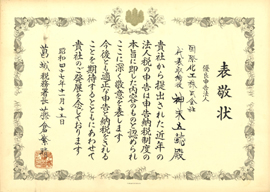 表敬状
優良申告法人
国際化工株式会社
代表取締役 神末五 殿
貴社から提出された近年の
法人税の申告は申告納税制度の
本旨に即した内容のものと認められ
ここに深く敬意を表します
今後とも適正な申告と納税をされる
ことを期待するとともにあわせて
貴社のご発展を念じております
昭和四十七年十一月十五日
葛城税務署長